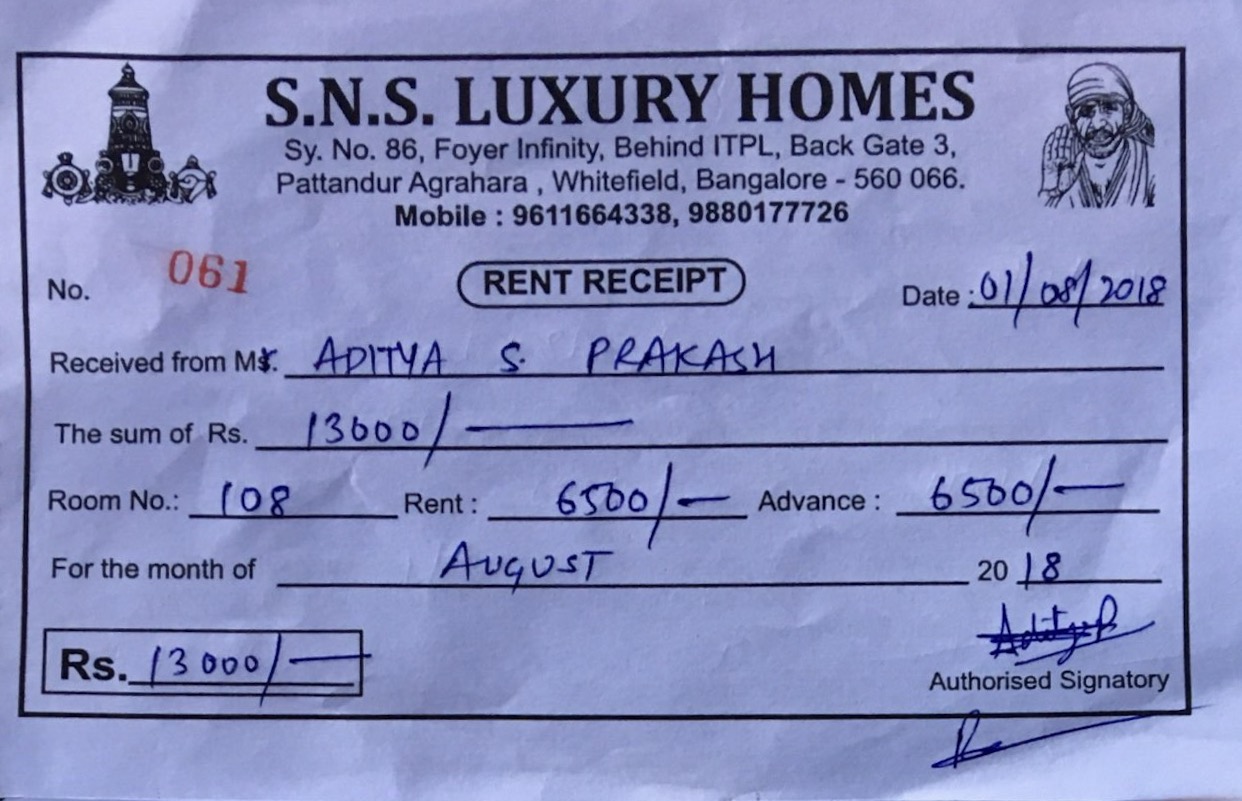 S.N.S. LUXURY HOMES
Sy. No. 86, Foyer Infinity, Behind ITPL, Back Gate 3,
Pattandur Agrahara , Whitefield, Bangalore - 560 066.
Mobile : 9611664338, 9880177726
No. 061 RENT RECEIPT Date : 01/08/2018
Received from Mr. ADITYA S. PRAKASH
The sum of Rs. 13000/-
Room No.: 108 Rent : 6500/- Advance : 6500/-
For the month of AUGUST 2018
Rs. 13000/-
Authorised Signatory